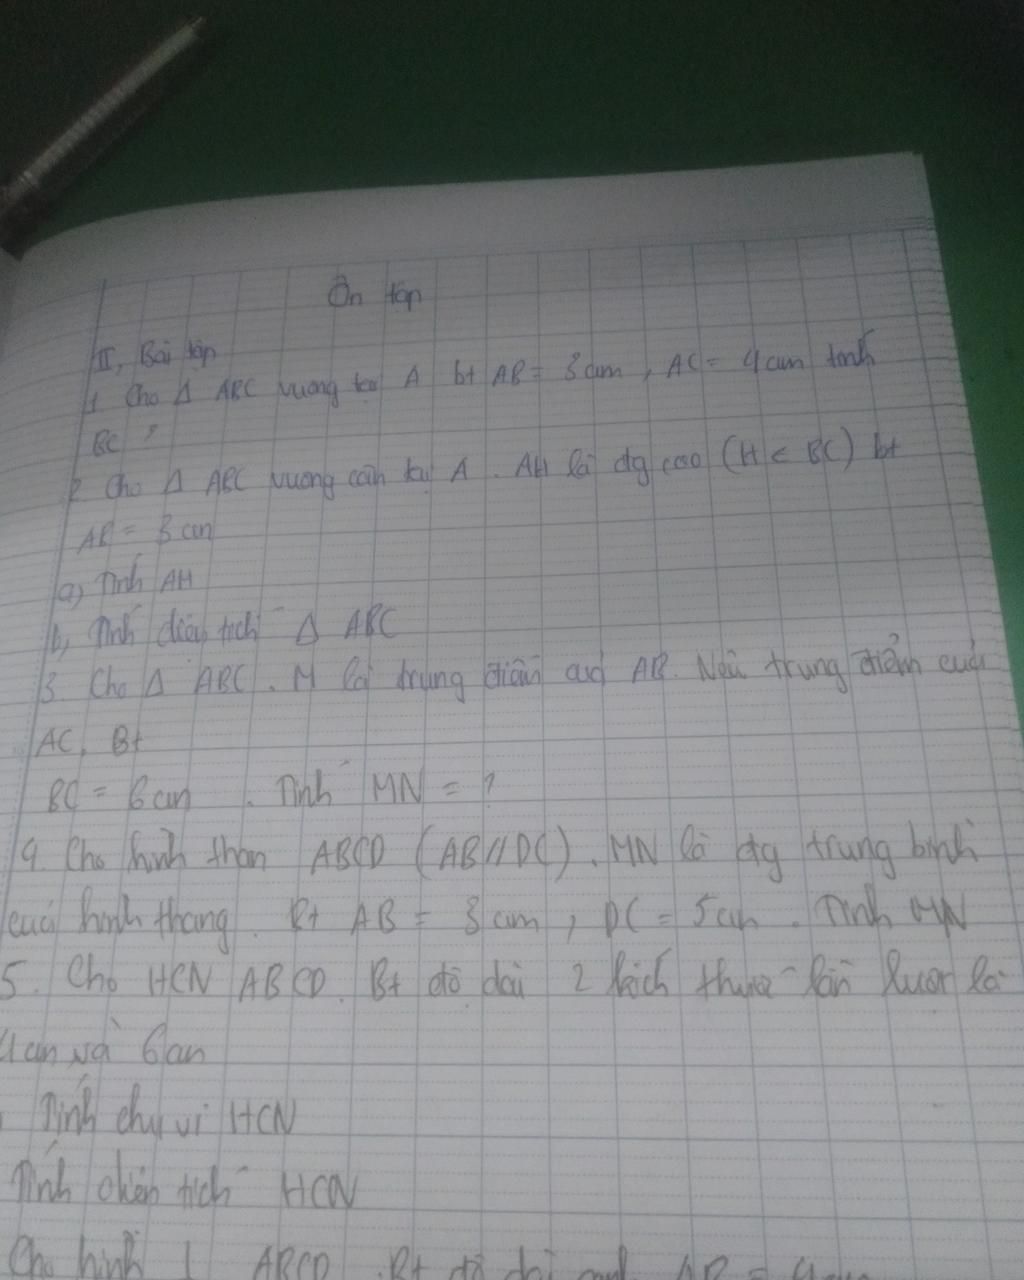 Ôn tập
II, Bài tập
1 Cho Δ ABC vuông tại A bt AB = 3 cm, AC = 4 cm tính
BC ?
2 Cho Δ ABC vuông cân tại A. AH là đg cao (H ∈ BC) bt
AB = 3 cm
a) Tính AH
b, Tính diện tích Δ ABC
3 Cho Δ ABC. M là trung điểm của AB. N là trung điểm của
AC, Bt
BC = 6 cm. Tính MN = ?
4. Cho hình than ABCD (AB//DC). MN là đg trung bình
của hình thang. Bt AB = 3 cm, DC = 5 cm. Tính MN
5. Cho HCN ABCD. Bt độ dài 2 kích thước lần lượt là
4 cm và 6 cm
Tính chu vi HCN
Tính diện tích HCN
Cho hình ABCD. Bt độ dài AB = 4 cm